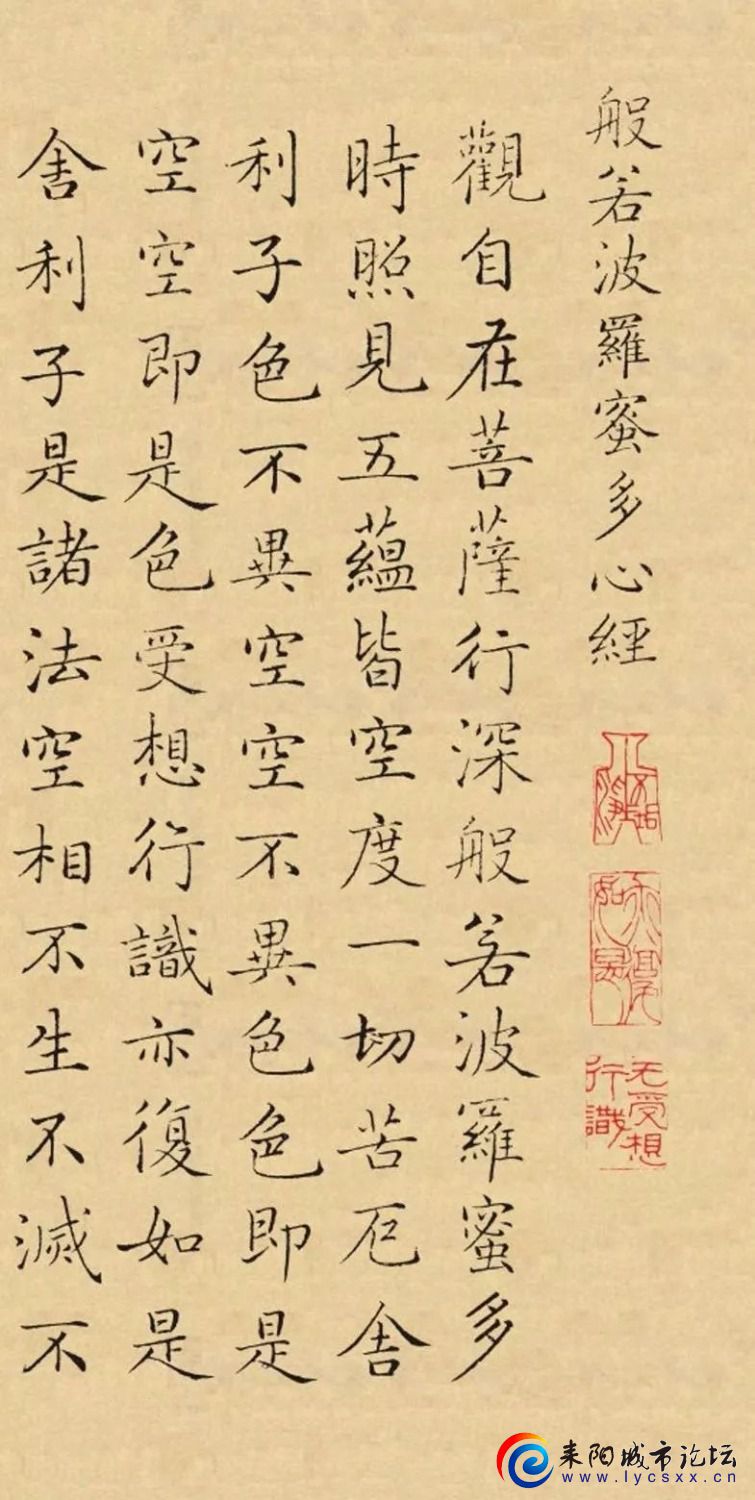 般若波羅蜜多心經
觀自在菩薩行深般若波羅蜜多
時照見五蘊皆空度一切苦厄舍
利子色不異空空不異色色即是
空空即是色受想行識亦復如是
舍利子是諸法空相不生不滅不
无受想
行識
耒阳城市论坛
www.lycsxx.cn